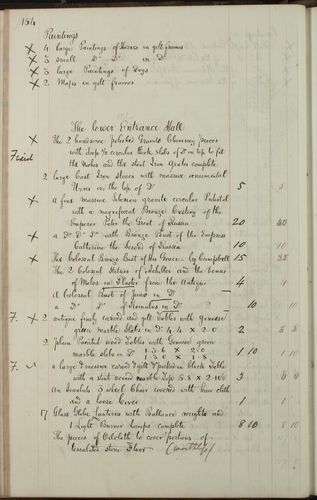 154
Paintings
X 4 large Paintings of Horses in gilt frames
X 3 small Do Do in Do
X 3 large Paintings of Dogs
X 2 Maps in gilt frames
The lower Entrance Hall
X The 2 handsome polished Granite Chimney pieces
with deep ½ circular thick slabs of Do on top to fit
Fixed the Niches and the stout Iron Grates complete
2 large Cast Iron Stoves with massive ornamental
Urns on the top of Do 5 5
X a fine massive Siberian granite circular Pedestal
with a magnificent Bronze Casting of the
Emperor Peter the Great of Russia 20 40
X a Do Do Do with Bronze Bust of the Empress
Catherine the Second of Russia 10 10
X The Colossal Bronze Bust of His Grace by Campbell 15 35
The 2 Colossal Statues of Achilles and the Venus
of Milos in Plaster from the Antique 4 4
A Colossal Bust of Juno in Do
a Do Do of Romulus in Do 10 10
F. X 2 antique finely carved and gilt Tables with Genoese
green marble Slabs on Do 4.4 X 2.0 2 5 5
2 plain Painted wood Tables with Genoese green
marble slabs on Do 1 10 1 10
F. a large Genoese carved & gilt
with a stout veined marble Top 5.8 X 2.10 3
An Invalids 3 wheel Chair covered with hair cloth
and a loose Cover 1 1
17 Glass Globe Lanterns with Ballance weights and
1 Light Burner Lamps complete 8 10 8 10
The pieces of Oilcloth to cover portions of
tesselated stone Floor (worthless)